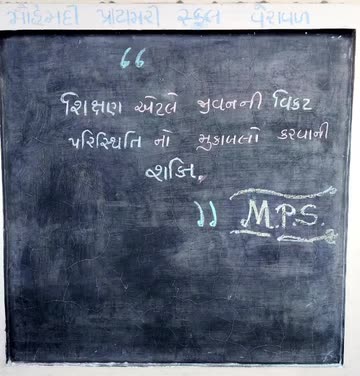 મોહંમદી પ્રાયમરી સ્કુલ વેરાવળ
“
શિક્ષણ એટલે જીવનની વિકટ
પરિસ્થિતિ નો મુકાબલો કરવાની
શક્તિ.
” M.P.S.